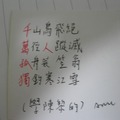 千山鳥飛絕
萬徑人蹤滅
孤舟蓑笠翁
獨釣寒江雪
(學陳黎的)